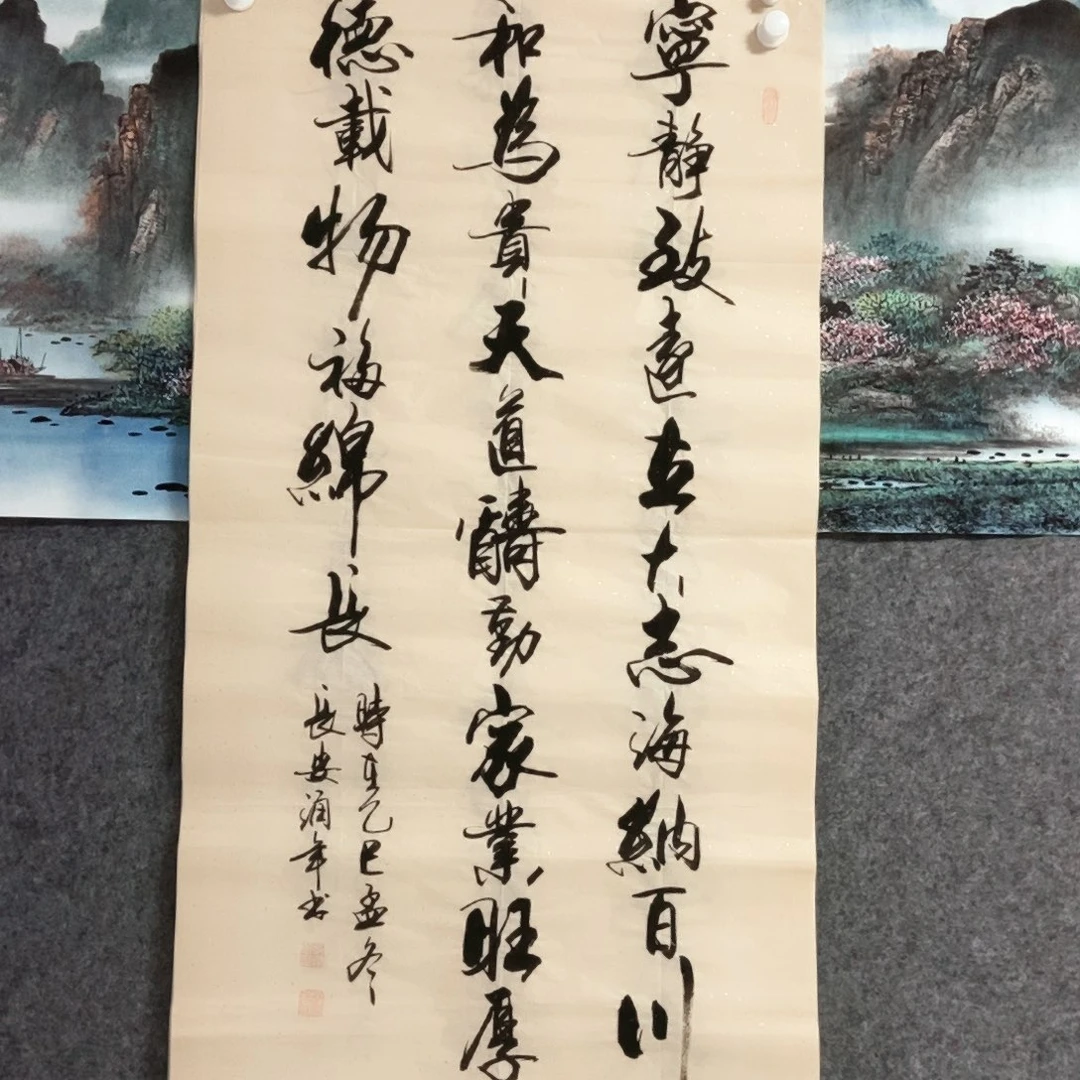 寧靜致遠立大志海納百川
和為貴天道醻勤家業旺厚
德載物福綿長
時在乙巳孟冬
長安涌年书